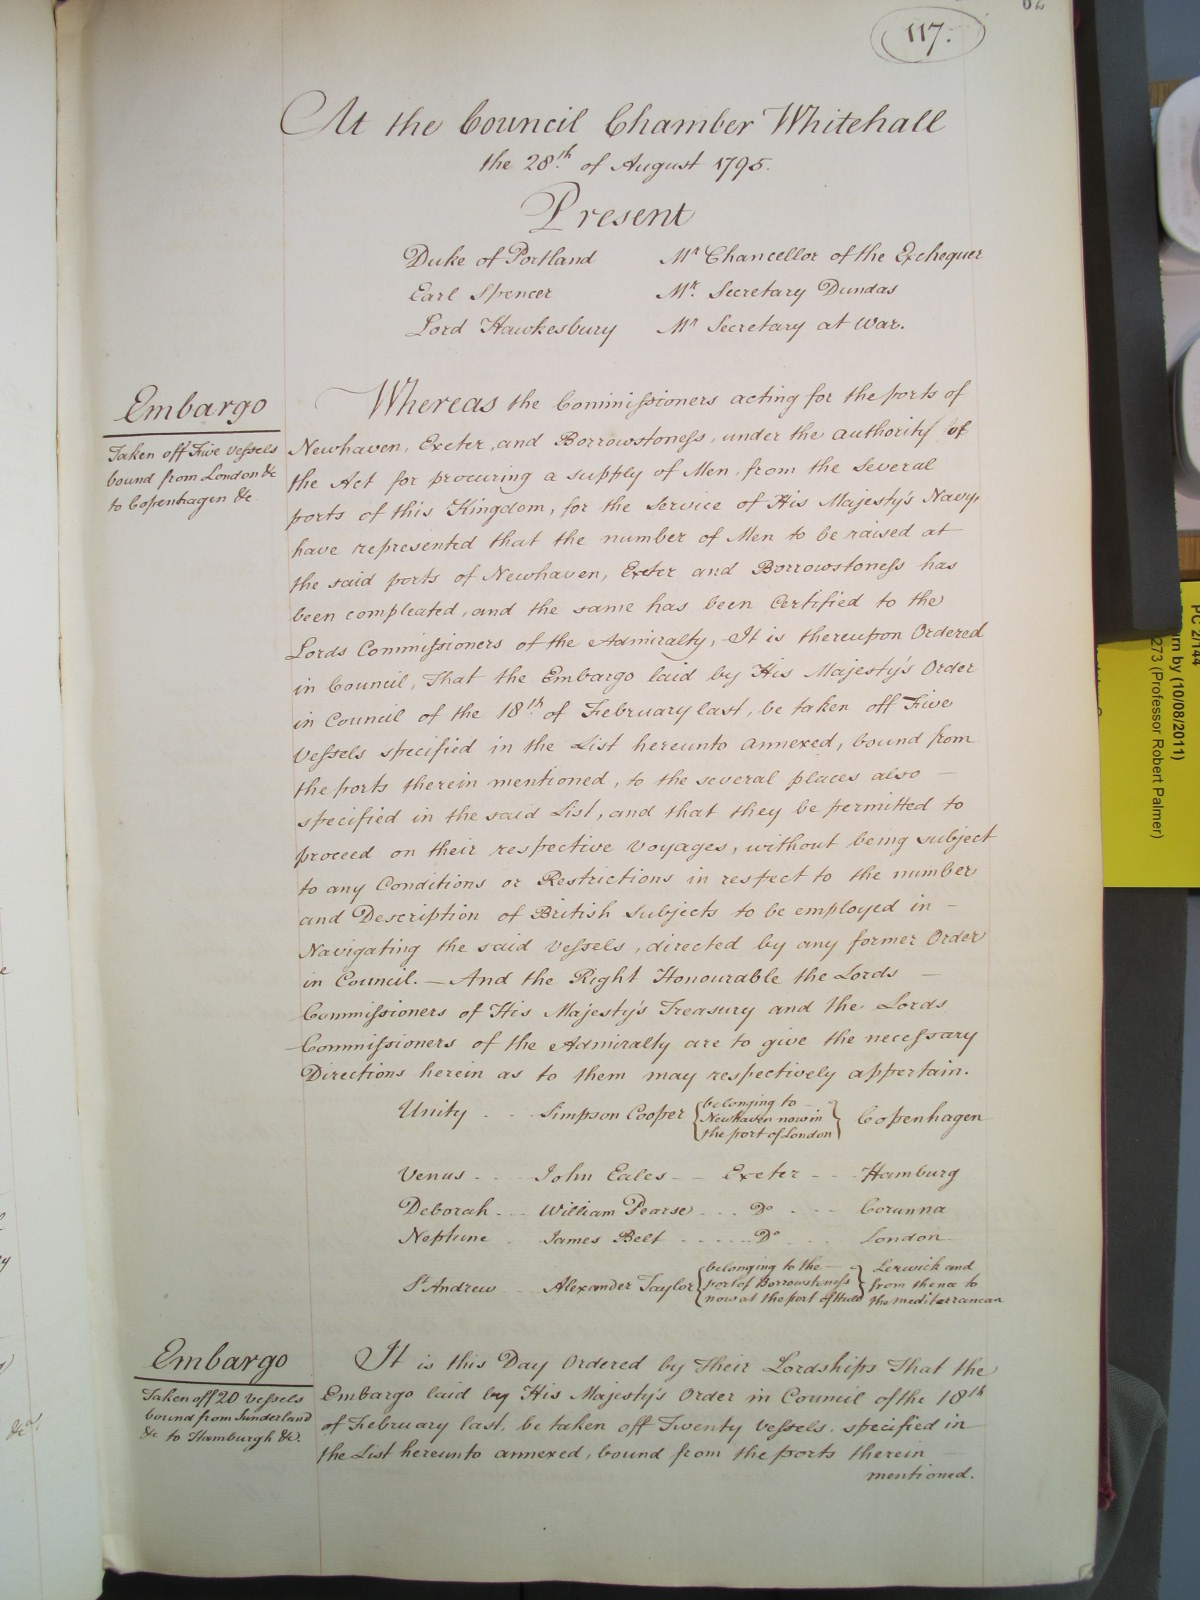 117.
At the Council Chamber Whitehall
the 28th of August 1795.
Present
Duke of Portland Mr Chancellor of the Exchequer
Earl Spencer Mr. Secretary Dundas
Lord Hawkesbury Mr Secretary at War.
Embargo
Taken off Five Vessels
bound from London &c
to Copenhagen &c
Whereas the Commissioners acting for the ports of
Newhaven, Exeter, and Borrowstoness, under the authority of
the Act for procuring a supply of Men from the several
ports of this Kingdom, for the Service of His Majesty's Navy,
have represented that the number of Men to be raised at
the said ports of Newhaven, Exeter and Borrowstoness has
been compleated, and the same has been Certified to the
Lords Commissioners of the Admiralty, It is thereupon Ordered
in Council, That the Embargo laid by His Majesty's Order
in Council of the 18th of February last, be taken off Five
Vessels specified in the List hereunto annexed, bound from
the ports therein mentioned, to the several places also —
specified in the said List, and that they be permitted to
proceed on their respective Voyages, without being subject
to any Conditions or Restrictions in respect to the number
and Description of British Subjects to be employed in —
Navigating the said Vessels, directed by any former Order
in Council. — And the Right Honourable the Lords —
Commissioners of His Majesty's Treasury and the Lords
Commissioners of the Admiralty are to give the necessary
Directions herein as to them may respectively appertain.
Unity - - Simpson Cooper {belonging to — Newhaven now in the port of London} Copenhagen
Venus - - John Eales - - Exeter - - Hamburg
Deborah - - William Pearse - - Do - - Corunna
Neptune - James Belt - - - Do - - London
St Andrew - Alexander Taylor {belonging to the — port of Borrowstoness now at the port of Hull} Lerwick and from thence to the mediterranean
Embargo
Taken off 20 Vessels
bound from Sunderland
&c to Hamburgh &c.
It is this Day Ordered by Their Lordships That the
Embargo laid by His Majesty's Order in Council of the 18th
of February last, be taken off Twenty Vessels, specified in
the List hereunto annexed, bound from the ports therein —
mentioned.
PC 2/144
urn by (10/08/2011)
273 (Professor Robert Palmer)